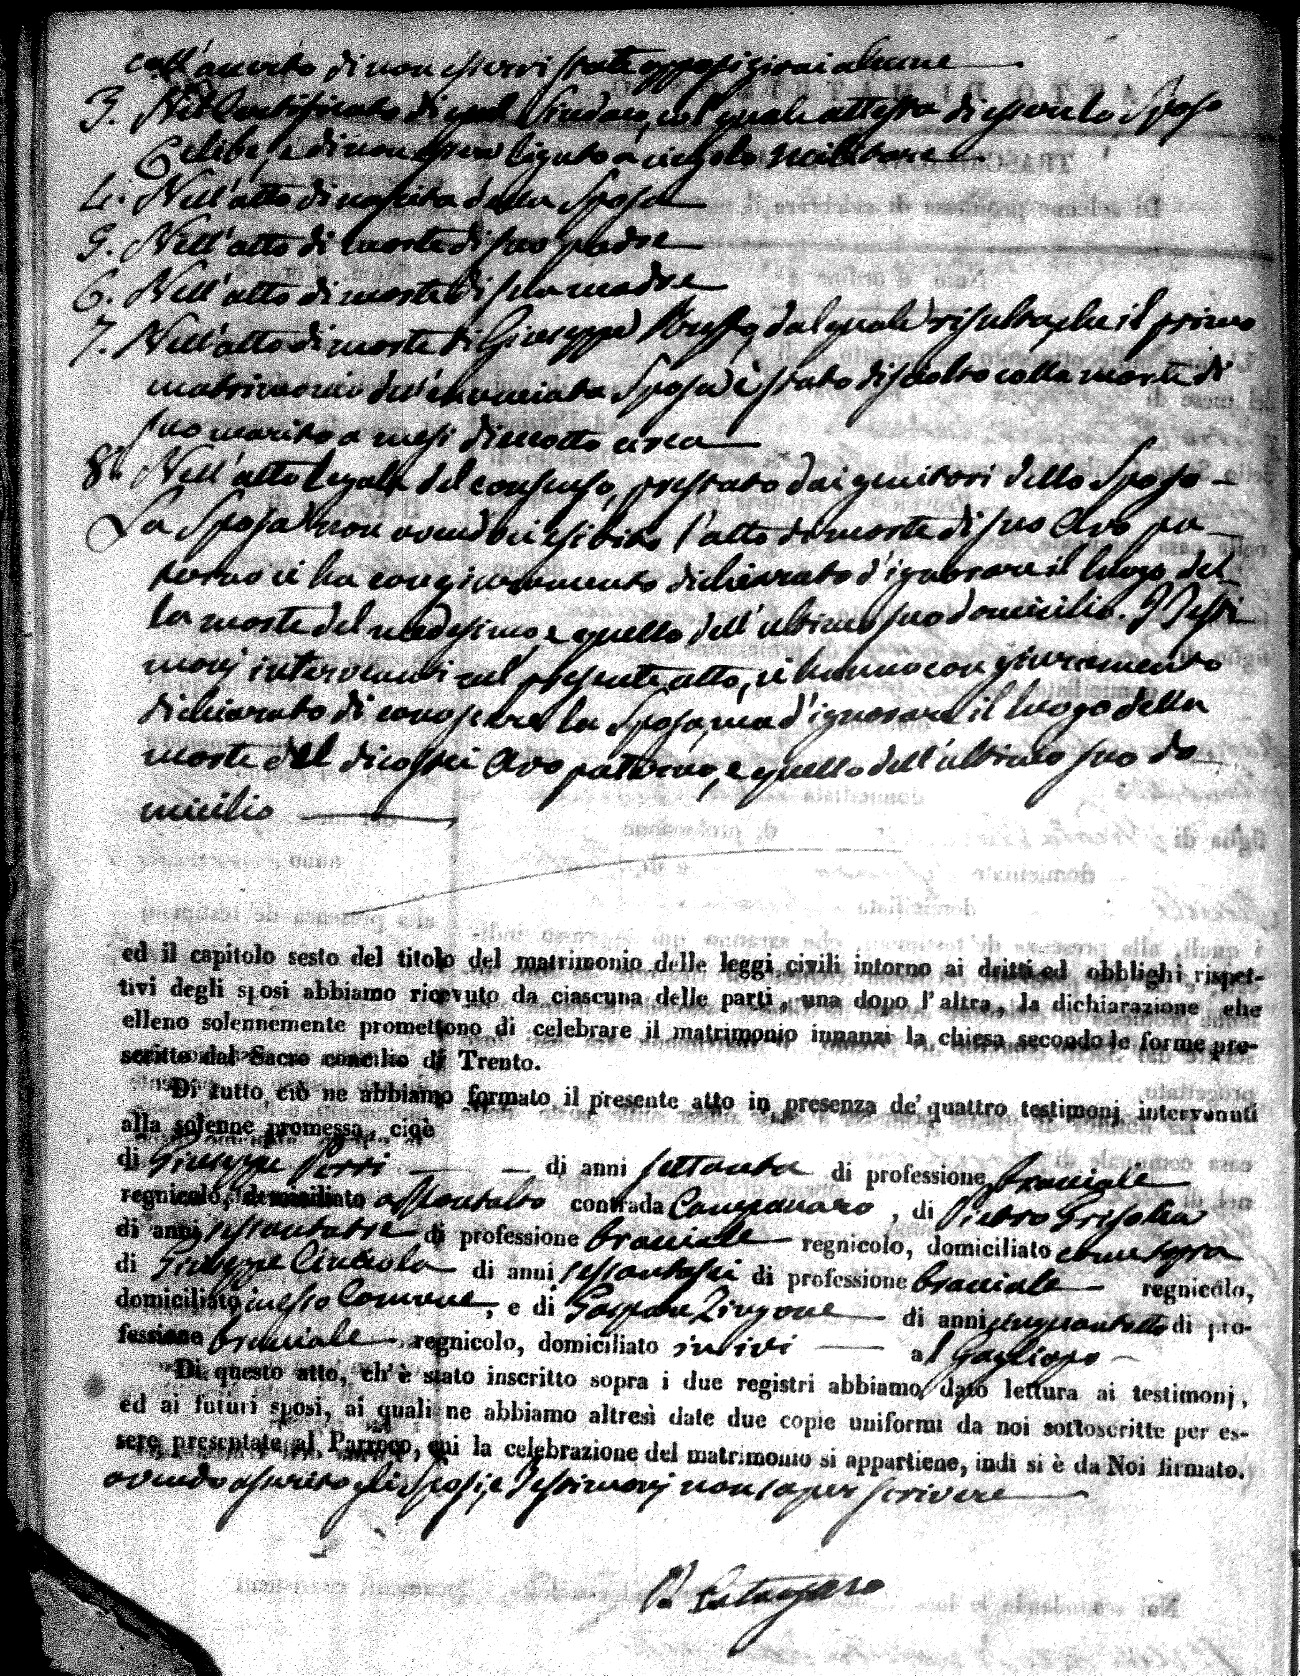 coll'averto di non esservi state opposizioni alcune
3. Nel Certificato di quel Sindaco, col quale attesta di essere lo Sposo
Celibe, e di non esser ligato a vincolo militare
4. Nell'atto di nascita della Sposa
5. Nell'atto di morte di suo padre
6. Nell'atto di morte di sua madre
7. Nell'atto di morte di Giuseppe dal quale risulta, che il primo
matrimonio dell'enunciata Sposa è stato disciolto colla morte di
suo marito a mesi diciotto circa
8. Nell'atto legale del consenso, prestato dai genitori dello Sposo
La Sposa non avendo esibito l'atto di morte di suo Avo pa-
terno ci ha con giuramento dichiarato d'ignorare il luogo del-
la morte del medesimo, e quello dell'ultimo suo domicilio. I Testi-
monj intervenuti nel presente atto, ci hanno con giuramento
dichiarato di conoscere la Sposa, ma d'ignorare il luogo della
morte del di costei Avo paterno, e quello dell'ultimo suo do-
micilio
ed il capitolo sesto del titolo del matrimonio delle leggi civili intorno ai dritti ed obblighi rispet-
tivi degli sposi abbiamo ricevuto da ciascuna delle parti, una dopo l'altra, la dichiarazione che
elleno solennemente promettono di celebrare il matrimonio innanzi la chiesa secondo le forme pre-
scritte dal Sacro concilio di Trento.
Di tutto ciò ne abbiamo formato il presente atto in presenza de' quattro testimonj intervenuti
alla solenne promessa, cioè
di Giuseppe Perri di anni settanta di professione bracciale
regnicolo, domiciliato a Montalto contrada Campanaro, di Pietro Grisolia
di anni sessantatre di professione bracciale regnicolo, domiciliato come sopra
di Giuseppe di anni sessantasei di professione bracciale regnicolo,
domiciliato in esso Comune, e di Gaspare Zingone di anni cinquantotto di pro-
fessione bracciale regnicolo, domiciliato ivi al
Di questo atto, ch'è stato inscritto sopra i due registri abbiamo dato lettura ai testimonj,
ed ai futuri sposi, ai quali ne abbiamo altresì date due copie uniformi da noi sottoscritte per es-
sere presentate al Parroco, cui la celebrazione del matrimonio si appartiene, indi si è da Noi firmato.
avendo asserito gli Sposi, e Testimonj non saper scrivere